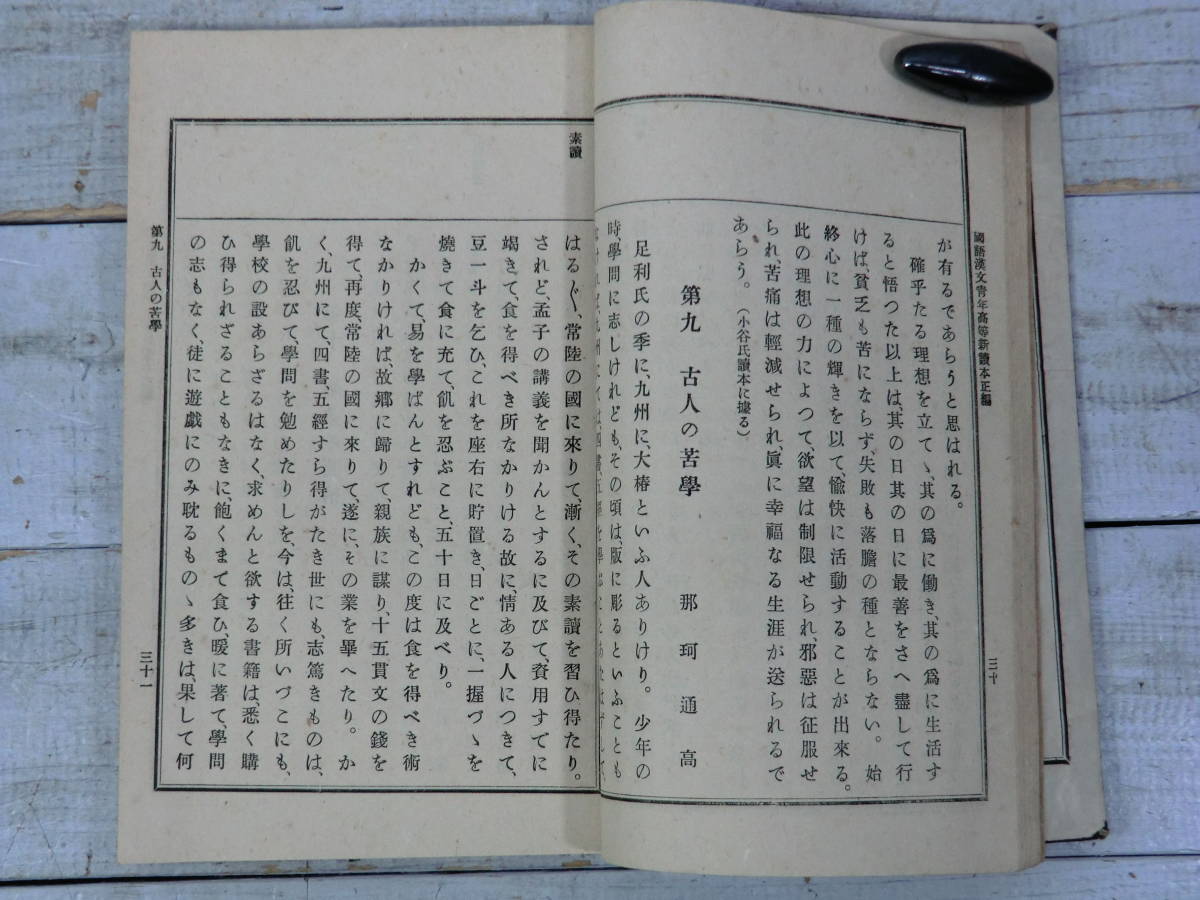 國語漢文靑年高等新讀本正編
三十
が有るであらうと思はれる。
確乎たる理想を立てゝ、其の爲に働き其の爲に生活す
ると悟つた以上は、其の日其の日に最善をさへ盡して行
けば、貧乏も苦にならず、失敗も落膽の種とならない。始
終心に一種の輝きを以て、愉快に活動することが出來る。
此の理想の力によつて、欲望は制限せられ、邪惡は征服せ
られ、苦痛は輕減せられ、眞に幸福なる生涯が送られるで
あらう。(小谷氏讀本に據る)
第九 古人の苦學 那珂通高
足利氏の季に、九州に、大椿といふ人ありけり。少年の
時、學問に志しけれども、その頃は、版に彫るといふことも
素讀
はる〴〵、常陸の國に來りて、漸く、その素讀を習ひ得たり。
されど、孟子の講義を聞かんとするに及びて、資用すでに
竭きて、食を得べき所なかりける故に、情ある人につきて、
豆一斗を乞ひ、これを座右に貯置き、日ごとに、一握づゝを
燒きて食に充て、飢を忍ぶこと、五十日に及べり。
かくて、易を學ばんとすれども、この度は食を得べき術
なかりければ、故郷に歸りて、親族に謀り、十五貫文の錢を
得て、再度、常陸の國に來りて、遂に、その業を畢へたり。か
く、九州にて、四書、五經すら得がたき世にも、志篤きものは、
飢を忍びて、學問を勉めたりしを、今は、往く所いづこにも、
學校の設あらざるはなく、求めんと欲する書籍は、悉く購
ひ得られざることもなきに、飽くまで食ひ、暖に著て、學問
の志もなく、徒に遊戲にのみ耽るものゝ多きは、果して何
第九 古人の苦學
三十一